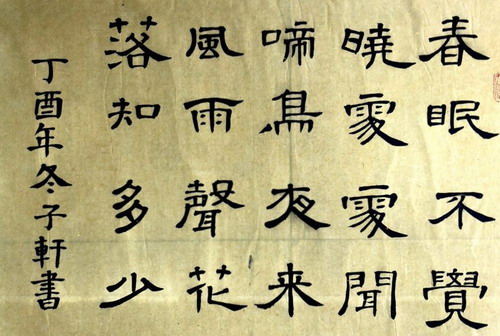 春眠不覺
曉處處聞
啼鳥夜来
風雨聲花
落知多少
丁酉年冬子軒書